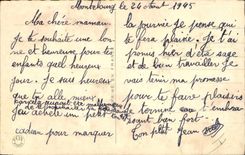 Montebourg le 26 Août 1945
Ma chère maman
Je te souhaite une bonne
et heureuse pour tes
enfants quel heureux
jour. Je suis heureux
que tu aille mieux
J'ai acheté un petit
cadeau pour marquer
la journée je pense qui
te fera plaisir. Je t'ai
promis hier d'être sage
et de bien travailler je
vais tenir ma promesse
pour te faire plaisir
Je termine en t'embras
sant bien fort.
Ton petit Jean